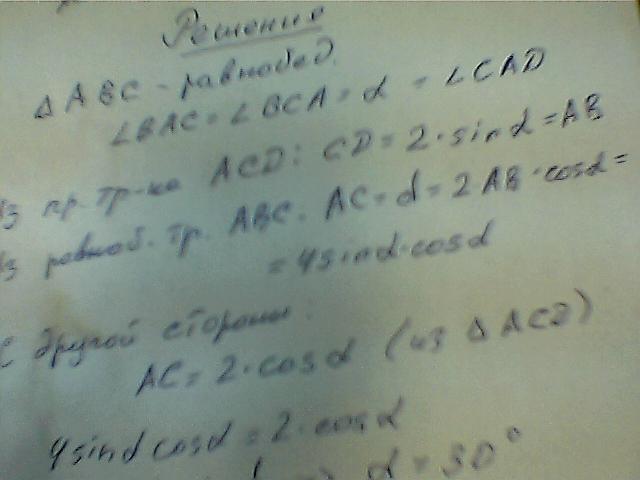 Решение
△ ABC - равнобед.
∠BAC = ∠BCA = α = ∠CAD
Из пр. тр-ка ACD: CD = 2·sinα = AB
Из равноб. тр. ABC. AC = d = 2AB·cosα =
= 4sinα·cosα
С другой стороны:
AC = 2·cosα (из △ ACD)
4sinα cosα = 2·cosα
α = 30°